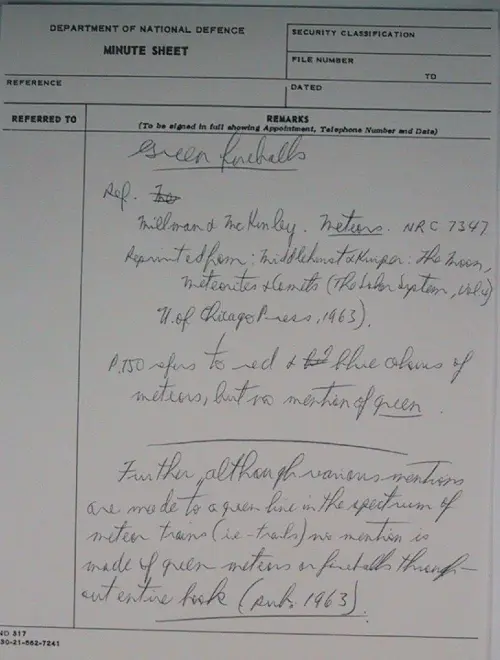 DEPARTMENT OF NATIONAL DEFENCE
MINUTE SHEET
SECURITY CLASSIFICATION
FILE NUMBER
TO
REFERENCE
DATED
REFERRED TO
REMARKS
(To be signed in full showing Appointment, Telephone Number and Date)
Green fireballs
Ref.
Millman & McKinley. Meteors. NRC 7347
Reprinted from: Middlehurst & Kuiper: The Moon,
Meteorites & Comets (The Solar System, Vol 4)
U. of Chicago Press, 1963).
P. 750 refers to red & blue colours of
meteors, but no mention of green.
Further, although various mentions
are made to a green line in the spectrum of
meteor trains (i.e. trails) no mention is
made of green meteors or fireballs through-
out entire book (pub. 1963).
ND 317
30-21-882-7241